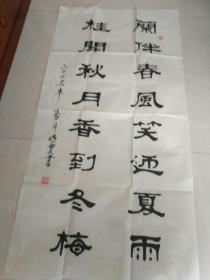 蘭伴春風笑迎夏雨
桂開秋月香到冬梅